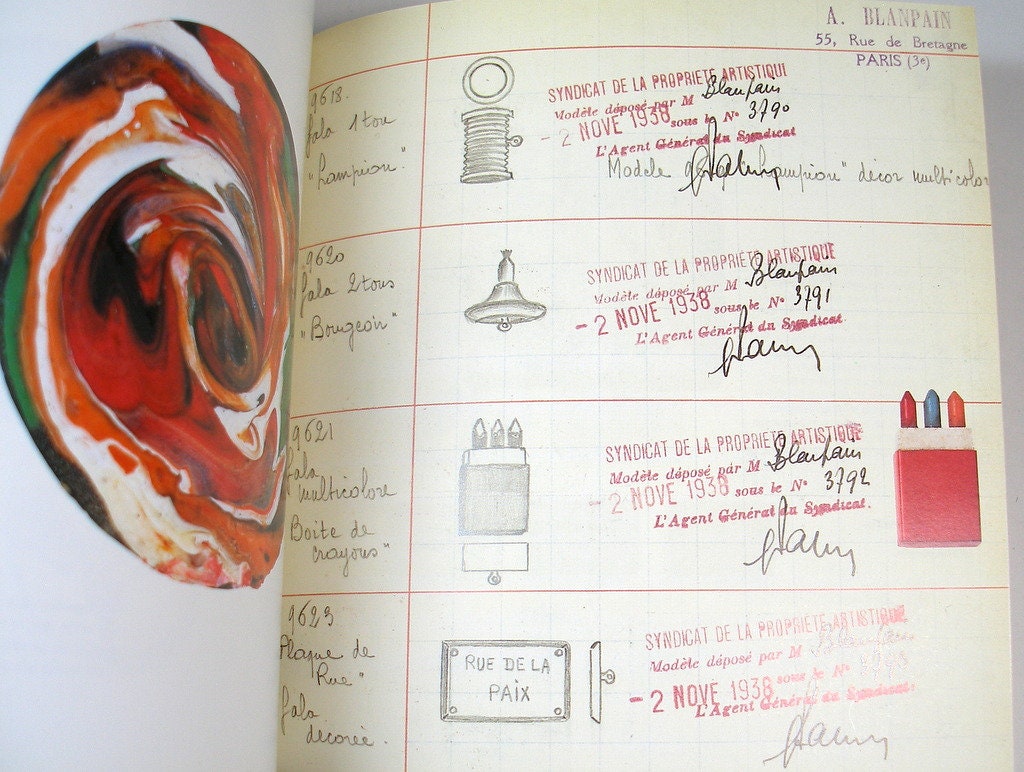 A. BLANPAIN
55, Rue de Bretagne
PARIS (3e)
9618.
Gala 1 ton
"Lampion."
SYNDICAT DE LA PROPRIETE ARTISTIQUE
Modèle déposé par M Blanpain
- 2 NOVE 1938 sous le N° 3790
L'Agent Général du Syndicat
Modèle "Lampion" décor multicolore
9620
Gala 2 tons
"Bougeoir"
SYNDICAT DE LA PROPRIETE ARTISTIQUE
Modèle déposé par M Blanpain
- 2 NOVE 1938 sous le N° 3791
L'Agent Général du Syndicat.
9621
Gala
multicolore
Boite de
crayons"
SYNDICAT DE LA PROPRIETE ARTISTIQUE
Modèle déposé par M Blanpain
- 2 NOVE 1938 sous le N° 3792
L'Agent Général du Syndicat.
9623
Plaque de
Rue"
Gala
décorée.
RUE DE LA
PAIX
SYNDICAT DE LA PROPRIETE ARTISTIQUE
Modèle déposé par M Blanpain
- 2 NOVE 1938 sous le N°
L'Agent Général du Syndicat.